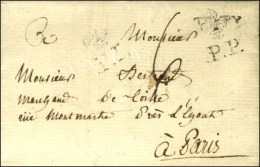 Monsieur
P.P.
Monsieur Bertrand
Marchand de toille
rüe Montmartre Près l'Egout
à Paris